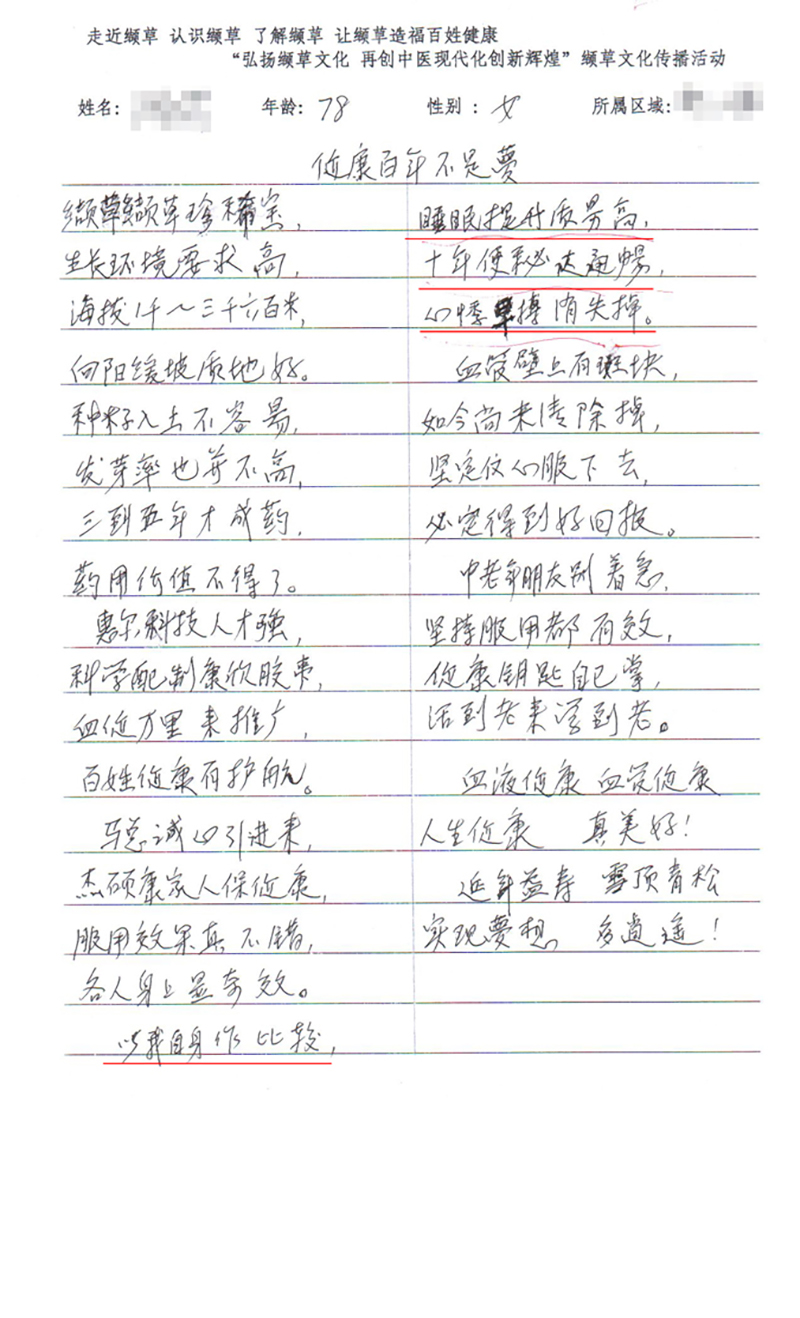 走近缬草 认识缬草 了解缬草 让缬草造福百姓健康
“弘扬缬草文化 再创中医现代化创新辉煌” 缬草文化传播活动
姓名： 年龄：78 性别：女 所属区域：
健康百年不是夢
缬草缬草珍稀宝，
生长环境要求高，
海拔1千～三千六百米，
向阳缓坡质地好。
种籽入土不容易，
发芽率也并不高，
三到五年才成药，
药用价值不得了。
惠尔科技人才强，
科学配制康欣胶束，
血健方里来推广，
百姓健康有护航。
马总诚心引进来，
杰硕康家人保健康，
服用效果真不错，
各人身上显奇效。
以我自身作比较，
睡眠提升质量高，
十年便秘达通暢，
心悸早搏消失掉。
血管壁上有斑块，
如今尚未清除掉，
坚定信心服下去，
必定得到好回报。
中老年朋友别着急，
坚持服用都有效，
健康钥匙自己掌，
活到老来学到老。
血液健康 血管健康
人生健康 真美好！
延年益寿 雪顶青松
实现夢想 多逍遥！